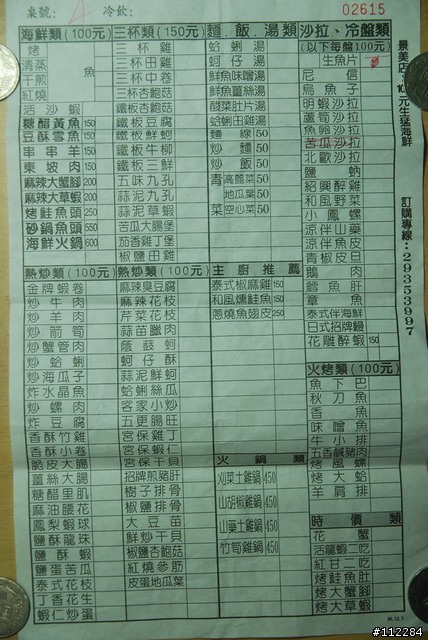 桌號： 冷飲： 02615
海鮮類(100元)
烤 清蒸 干煎 紅燒 魚
活沙蝦
糖醋黃魚 150
豆酥雪魚 150
串串羊 150
東坡肉 150
麻辣大蟹腳 200
麻辣大草蝦 200
烤鮭魚頭 250
砂鍋魚頭 550
海鮮火鍋 600
三杯類(150元)
三杯雞
三杯田雞
三杯中卷
三杯杏鮑菇
鐵板杏鮑菇
鐵板豆腐
鐵板鮮蚵
鐵板牛柳
鐵板三鮮
五味九孔
蒜泥九孔
蒜泥草蝦
苦瓜大腸煲
茄香雞丁煲
椒鹽田雞
麵.飯.湯類
蛤蜊湯
蚵仔湯
鮮魚味噌湯
鮮魚薑絲湯
酸菜肚片湯
蛤蜊田雞湯
麵線 50
炒麵 50
炒飯 50
青菜
高麗菜 50
地瓜葉 50
空心菜 50
沙拉、冷盤類
(以下每盤100元)
生魚片
尼信
烏魚子
明蝦沙拉
蘆筍沙拉
魚卵沙拉
苦瓜沙拉
北歐沙拉
鹽蚋
紹興醉雞
和風野菜
小鳳螺
涼伴山藥
涼伴魚皮
青椒皮旦
鵝肉
鱈魚肝
章魚
泰式伴海鮮
日式招牌鰻
花雕醉蝦 150
熱炒類(100元)
金牌蝦卷
炒牛肉
炒羊肉
炒箭筍
炒蟹管肉
炒蛤蜊
炒海瓜子
炸水晶魚
炒螺肉
炸豆腐
香酥竹雞
香酥小卷
脆皮大腸
薑絲大腸
糖醋里肌
麻油腰花
鳳梨蝦球
鹽酥龍珠
鹽酥蝦
鹽蛋苦瓜
泰式花枝
丁香花生
蝦仁炒蛋
熱炒類(100元)
麻辣臭豆腐
麻辣花枝
芹菜花枝
蒜苗臘肉
蔭豉蚵
蚵仔酥
蒜泥鮮蚵
蛤蜊絲瓜
客家小炒
五更腸旺
宮保雞丁
宮保魷魚
宮保干貝
招牌煎豬肝
樹子排骨
椒鹽排骨
大豆苗
鮮炒干貝
椒鹽杏鮑菇
紅燒參筋
皮蛋地瓜葉
主廚推薦
泰式椒麻雞 150
和風燻鮭魚 150
蔥燒魚翅皮 250
火鍋類
刈菜土雞鍋 450
山胡椒雞鍋 450
山藥土雞鍋 450
竹筍雞鍋 450
火烤類(100元)
魚下巴
秋刀魚
香魚
味噌魚
牛小排
五香鹹豬肉
烤鳳螺
烤大蛤
羊肩排
時價類
花蟹
活龍蝦二吃
紅甘二吃
烤鮭魚肚
烤大蟹腳
烤大草蝦
景美店：100元生猛海鮮
訂購專線：29353997
#112284